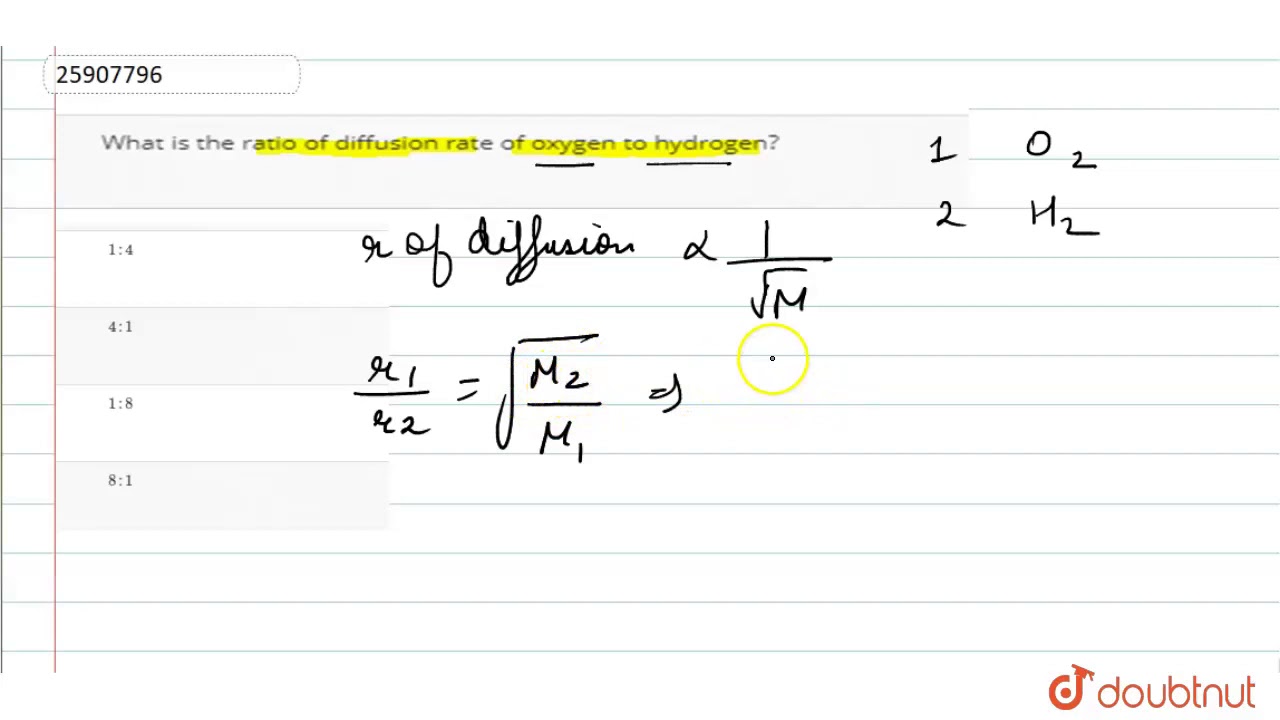 25907796
What is the ratio of diffusion rate of oxygen to hydrogen?
1 O₂
2 H₂
r of diffusion ∝ 1/√M
r₁/r₂ = √(M₂/M₁) ⇒
1:4
4:1
1:8
8:1
doubtnut